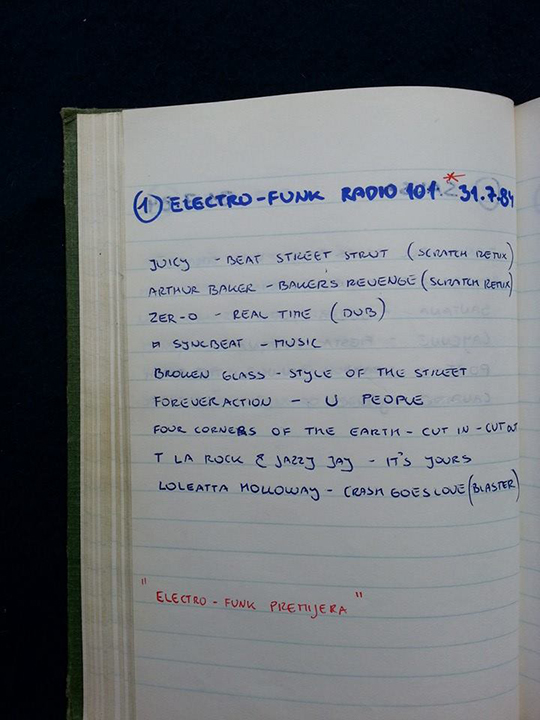 1 ELECTRO-FUNK RADIO 101. * 31.7.84
JUICY - BEAT STREET STRUT (SCRATCH REMIX)
ARTHUR BAKER - BAKERS REVENGE (SCRATCH REMIX)
ZER-O - REAL TIME (DUB)
SYNCBEAT - MUSIC
BROKEN GLASS - STYLE OF THE STREET
FOREVER ACTION - U PEOPLE
FOUR CORNERS OF THE EARTH - CUT IN - CUT OUT
T LA ROCK & JAZZY JAY - IT'S YOURS
LOLEATTA HOLLOWAY - CRASH GOES LOVE (BLASTER)
"ELECTRO-FUNK PREMIJERA"